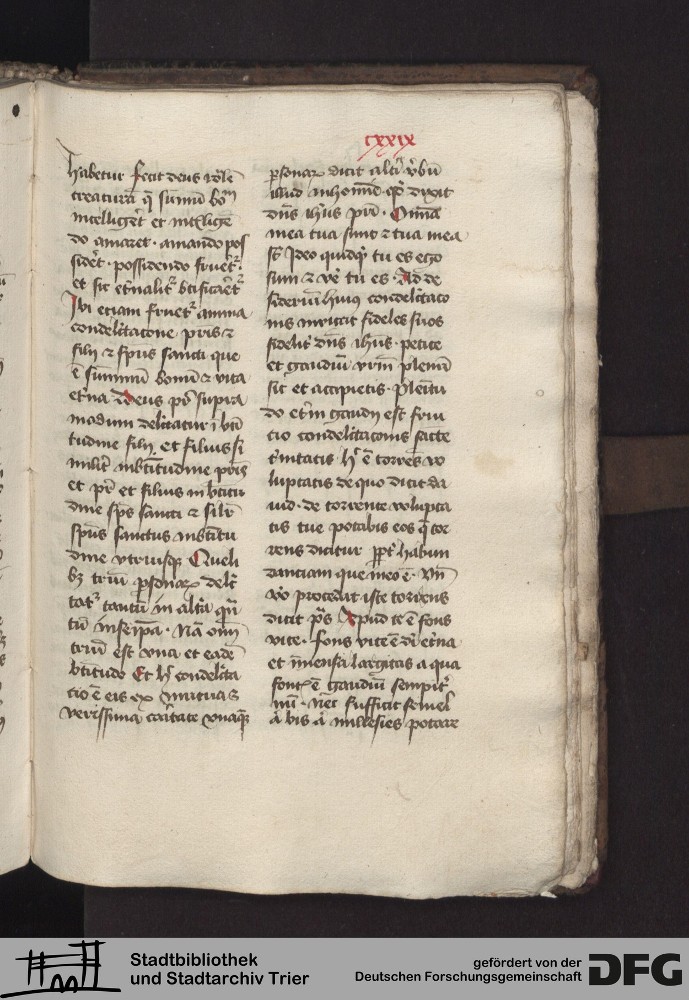 cxxix
habetur fecit deus rōlē
creaturā q̄ sūmū bo᷒
intelliget et intellige᷒
do amaret · amando pos
sidet · possidendo frueret᷒ ·
et sic et̄nalit᷒ btificaret᷒
Ibi etiam fruet᷒ anima
condelectacone pris ⁊
filij ⁊ spūs sancti que
ē summum bonū ⁊ vita
et̄na Deus pr̄ supra
modum delectatur ī bti
tudine filij et filius si
milit̄ in btitudine pris
et pr̄ et filius in btitu
dine spūs sancti ⁊ silr̄
spūs sanctus in btitu
dine vtriusqȝ Queli
bȝ triū psonaꝝ delec
tat᷒ tantū in alt̄a q̄n
tū in seipa · Nā om̄
triū est vna et eadē
btitudo Et h̄ condelecta
tio ē eis ex mutua ⁊
verissima caritate vnaqueqȝ
psonaꝝ dicit alt̄i v̄bū
illud in Iohanne qd̄ dixit
dn̄s ihūs pri · Omnia
mea tua sunt ⁊ tua mea
sic Ideo quidqd tu es ego
sum ⁊ vbi tu es · Ad de
siderium huius condelectaco
nis inuitat fideles suos
fidelit̄ dn̄s ihūs · petite
et gaudiū vr̄m plenū
sit et accipietis · Plenitu
do et̄m gaudij est frui
tio condelectaconis sancte
t̄nitatis h̄ ē torrens vo
luptatis de quo dicit da
uid · de torrente volupta
tis tue potabis eos q̄ tor
rens dicitur ppt̄ habun
danciam que in eo ē · Vn̄
v̄o procedit iste torrens
dicit p̄s Apud te ē fons
vite · fons vite ē di et̄na
et inmensa largitas a qua
font̄ ē gaudiū sempit̄
nū · nec sufficit semel
aut bis aut millesies potare
Stadtbibliothek
und Stadtarchiv Trier
gefördert von der
Deutschen Forschungsgemeinschaft
DFG